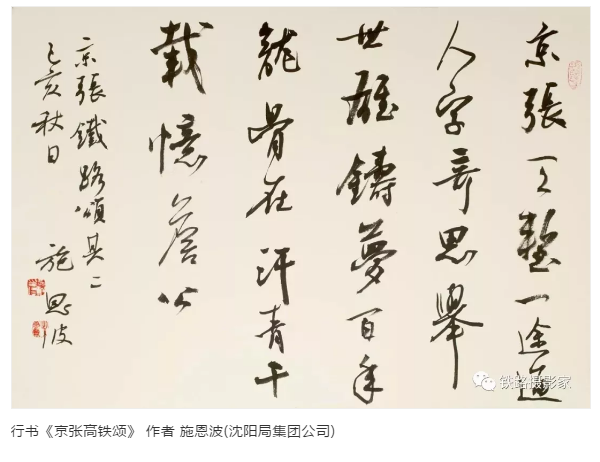 京張天塹一途通
人字奇思舉
世雄鑄夢百年
龍骨在汗青千
載憶詹公
京張鐵路頌其二
己亥秋日
施恩波
铁路摄影家
行书《京张高铁颂》 作者 施恩波(沈阳局集团公司)